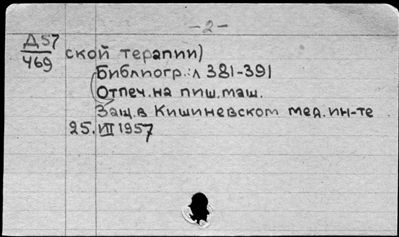 -2-
Д57
469
ской терапии)
Библиогр.: л 381-391
Отпеч. на пиш. маш.
Защ. в Кишиневском мед. ин-те
25.VII 1957